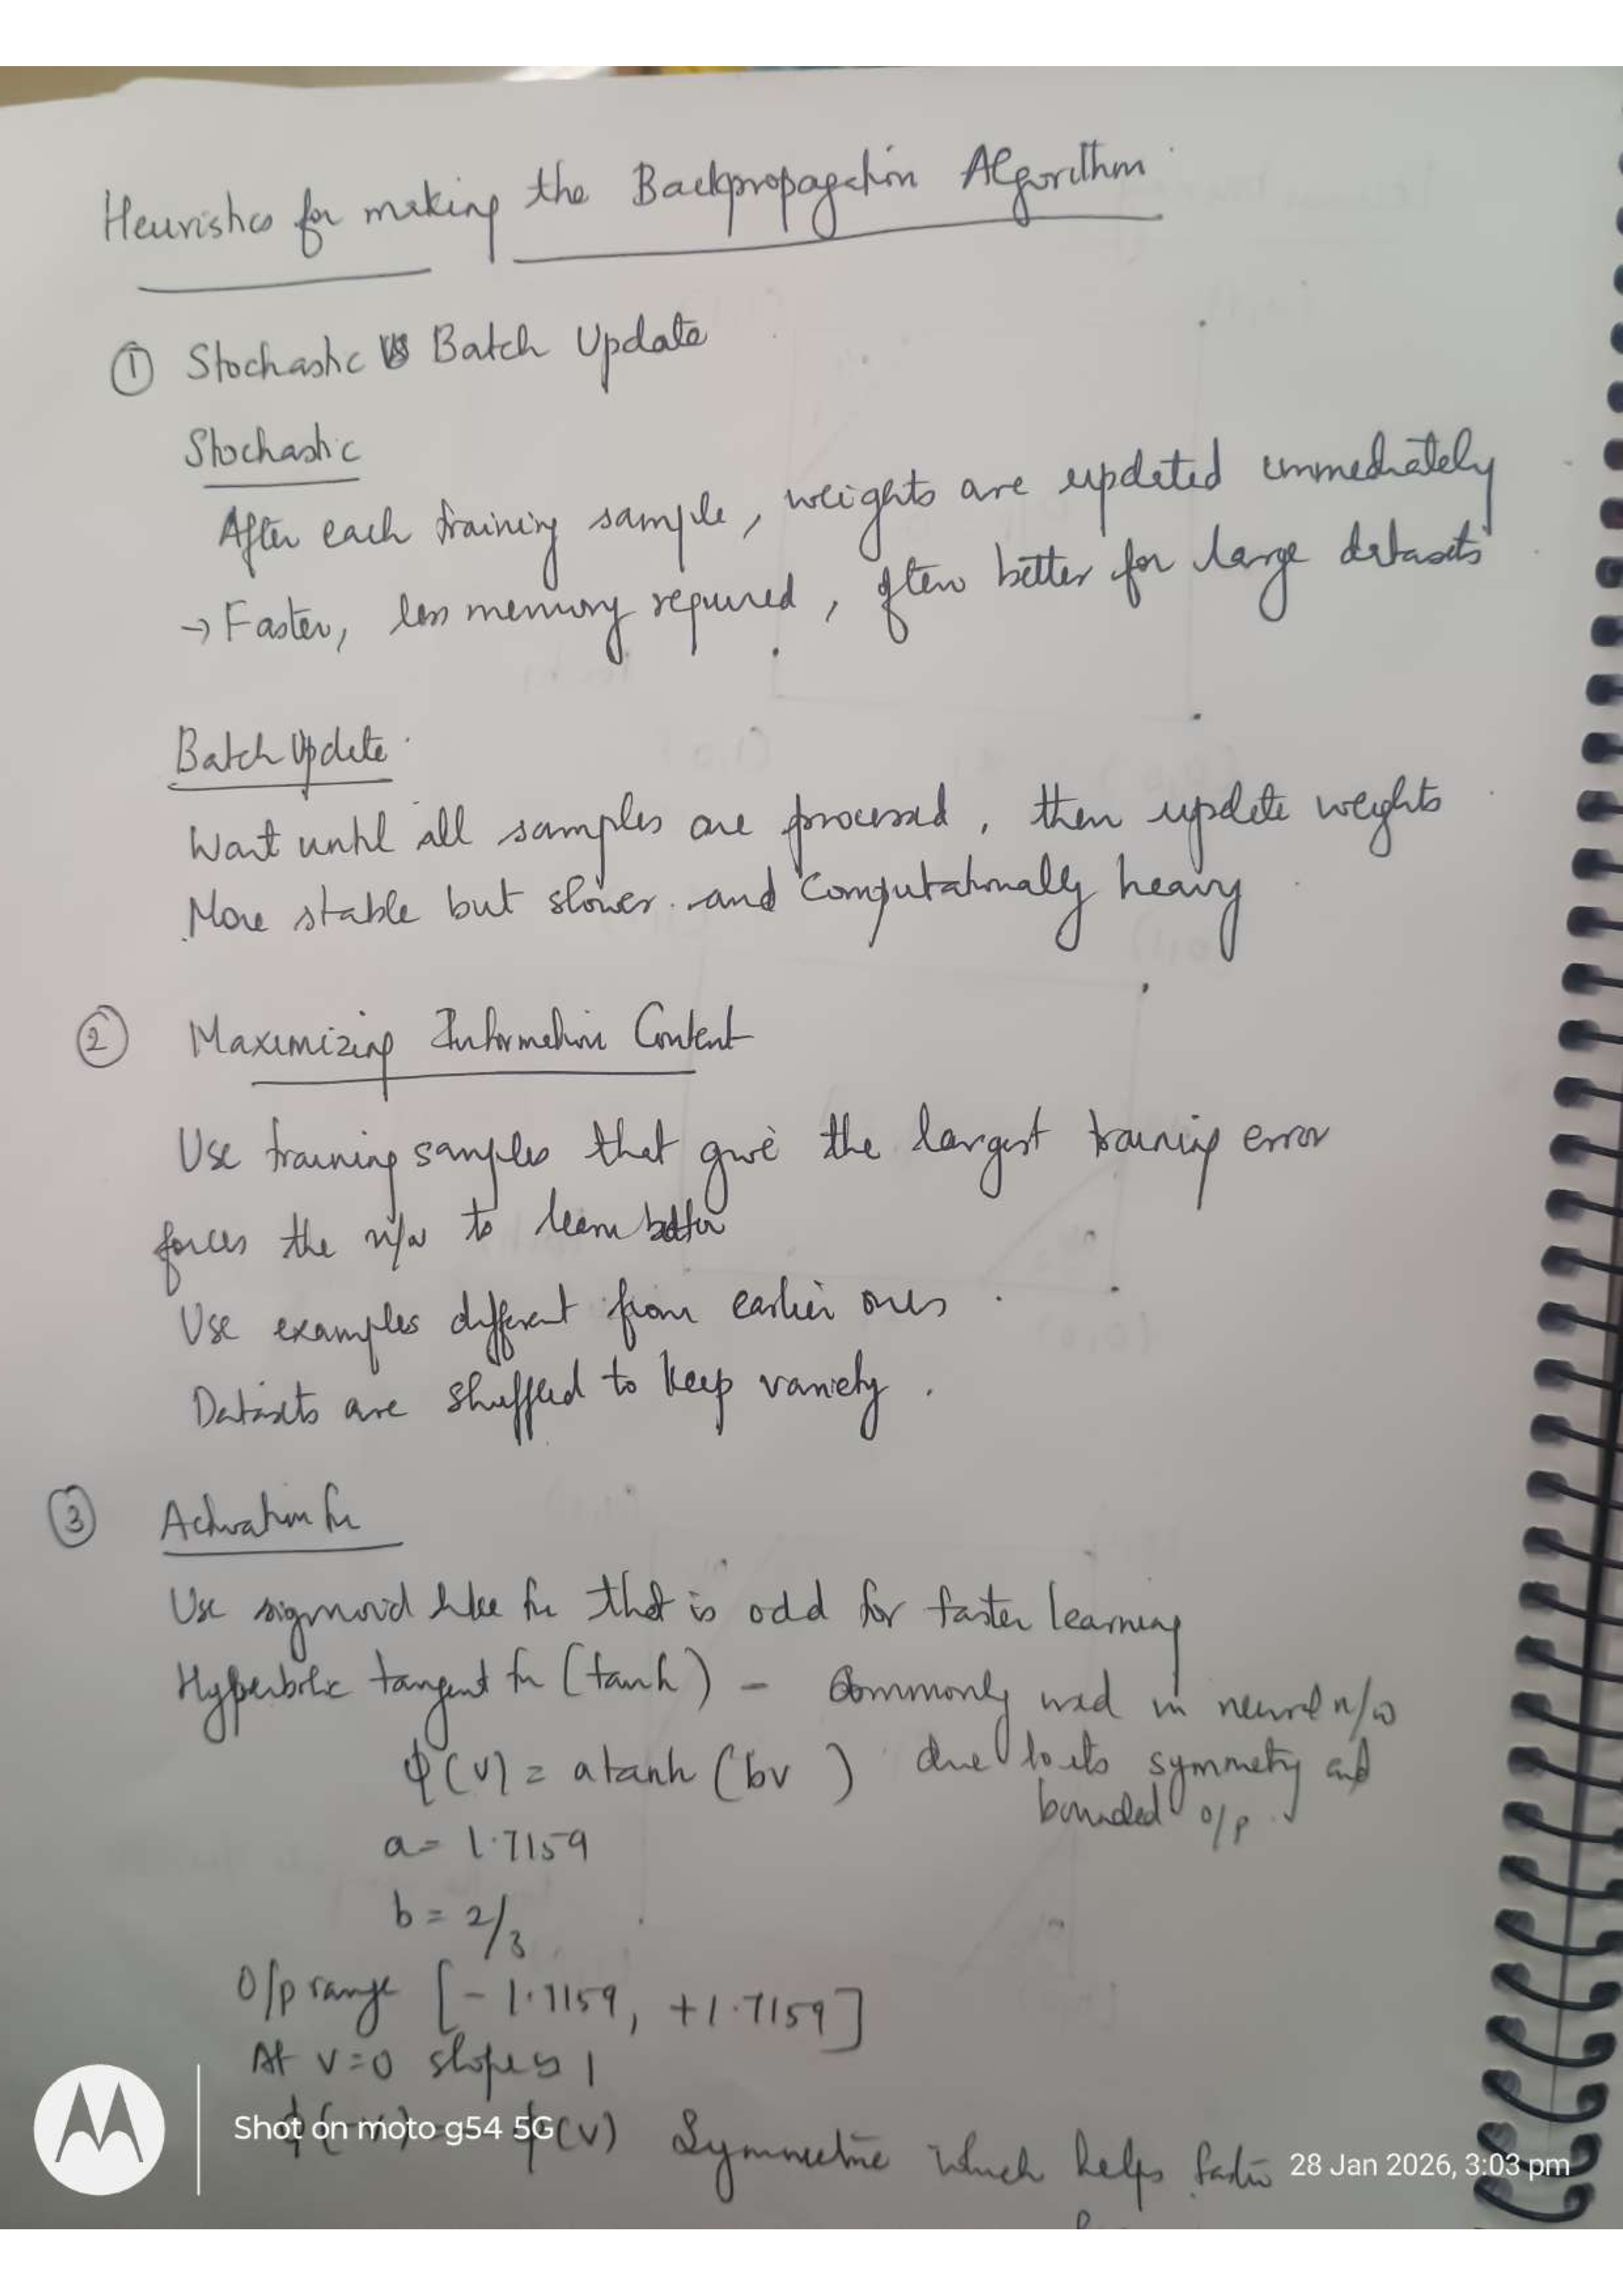 Heuristics for making the Backpropagation Algorithm
① Stochastic Vs Batch Update
Stochastic
After each training sample, weights are updated immediately
→ Faster, less memory required, often better for large datasets
Batch Update
Wait until all samples are processed, then update weights
More stable but slower and computationally heavy
② Maximizing Information Content
Use training samples that give the largest training error
forces the n/w to learn better
Use examples different from earlier ones.
Datasets are shuffled to keep variety.
③ Activation fn
Use sigmoid like fn that is odd for faster learning
Hyperbolic tangent fn (tanh) - Commonly used in neural n/w
φ(v) = a tanh (bv) due to its symmetry and
bounded o/p.
a = 1.7159
b = 2/3
O/p range [-1.7159, +1.7159]
At v=0 slope is 1
φ(v) Symmetric which helps faster
Shot on moto g54 5G
28 Jan 2026, 3:03 pm